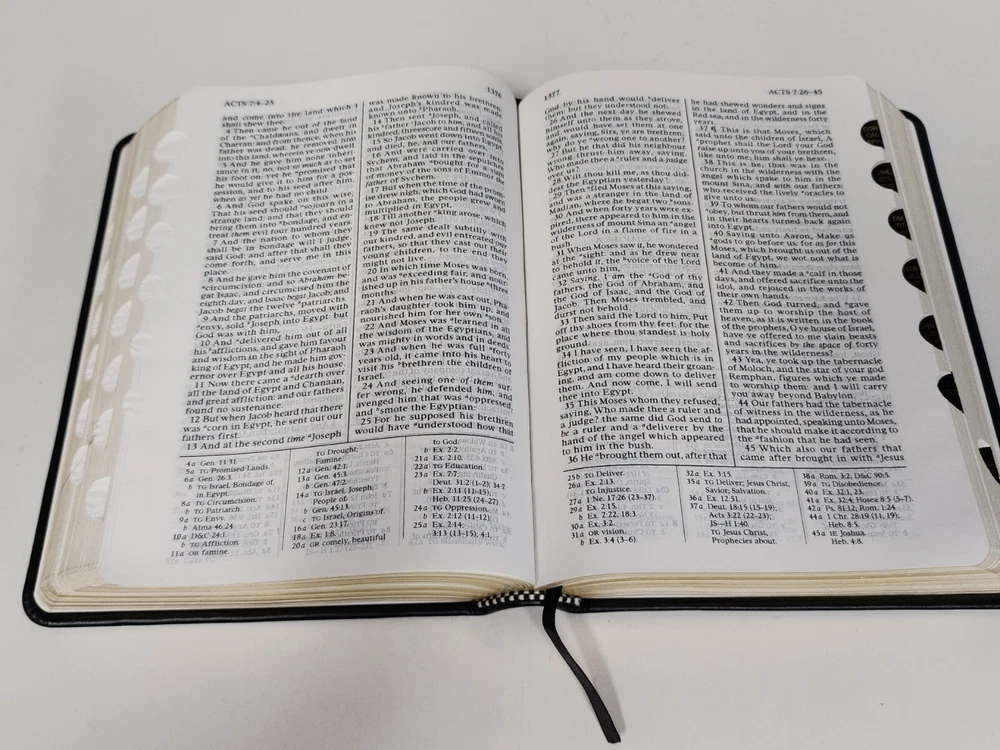 ACTS 7:4–25
1376
and come into the land which I
shall shew thee.
4 Then came he out of the land
of the ᵃChaldæans, and dwelt in
Charran: and from thence, when his
father was dead, he removed him
into this land, wherein ye now dwell.
5 And he gave him none inheri-
tance in it, no, not so much as to set
his foot on: yet he ᵃpromised that
he would give it to him for a pos-
session, and to his seed after him,
when as yet he had no child.
6 And God spake on this wise,
That his seed should ᵃsojourn in a
strange land; and that they should
bring them into ᵇbondage, and en-
treat them evil four hundred years.
7 And the nation to whom they
shall be in bondage will I judge,
said God: and after that shall they
come forth, and serve me in this
place.
8 And he gave him the covenant of
ᵃcircumcision: and so Abraham be-
gat Isaac, and circumcised him the
eighth day; and Isaac begat Jacob; and
Jacob begat the twelve ᵇpatriarchs.
9 And the patriarchs, moved with
ᵃenvy, sold ᵇJoseph into Egypt: but
God was with him,
10 And ᵃdelivered him out of all
his ᵇafflictions, and gave him favour
and wisdom in the sight of Pharaoh
king of Egypt; and he made him gov-
ernor over Egypt and all his house.
11 Now there came a ᵃdearth over
all the land of Egypt and Chanaan,
and great affliction: and our fathers
found no sustenance.
12 But when Jacob heard that there
was ᵃcorn in Egypt, he sent out our
fathers first.
13 And at the second time ᵃJoseph
was made known to his brethren;
and Joseph's kindred was made
known unto ᵇPharaoh.
14 Then sent ᵃJoseph, and called
his ᵇfather Jacob to him, and all his
kindred, threescore and fifteen souls.
15 So Jacob went down into Egypt,
and died, he, and our fathers,
16 And were carried over into
Sychem, and laid in the sepulchre
that Abraham ᵃbought for a sum
of money of the sons of Emmor the
father of Sychem.
17 But when the time of the prom-
ise drew nigh, which God had sworn
to Abraham, the people grew and
multiplied in Egypt,
18 Till another ᵃking arose, which
knew not Joseph.
19 The same dealt subtilly with
our kindred, and evil entreated our
fathers, so that they cast out their
young children, to the end they
might not live.
20 In which time Moses was born,
and was ᵃexceeding fair, and nour-
ished up in his father's house three
months:
21 And when he was cast out, Pha-
raoh's daughter took him up, and
nourished him for her own ᵃson.
22 And Moses was ᵃlearned in all
the wisdom of the Egyptians, and
was mighty in words and in deeds.
23 And when he was full ᵃforty
years old, it came into his heart to
visit his ᵇbrethren the children of
Israel.
24 And seeing one of them suf-
fer wrong, he defended him, and
avenged him that was ᵃoppressed,
and ᵇsmote the Egyptian:
25 For he supposed his brethren
would have ᵃunderstood how that
4a Gen. 11:31.
5a TG Promised Lands.
6a Gen. 26:3.
b TG Israel, Bondage of,
in Egypt.
8a TG Circumcision.
b TG Patriarch.
9a TG Envy.
b Alma 46:24.
10a D&C 24:1.
b TG Affliction.
11a OR famine.
TG Drought;
Famine.
12a Gen. 42:1.
13a Gen. 45:3.
b Gen. 47:2.
14a TG Israel, Joseph,
People of.
b Gen. 45:13.
c TG Israel, Origins of.
16a Gen. 23:17.
18a Ex. 1:8.
20a GR comely, beautiful
to God.
b Ex. 2:2.
21a Ex. 2:10.
22a TG Education.
23a Ex. 7:7;
Deut. 31:2 (1–2); 34:7.
b Ex. 2:11 (11–15);
Heb. 11:25 (24–27).
24a TG Oppression.
b Ex. 2:12 (11–12).
25a Ex. 2:14;
3:13 (13–15); 4:1.
1377
ACTS 7:26–45
God by his hand would ᵇdeliver
them: but they understood not.
26 And the next day he shewed
himself unto them as they strove,
and would have set them at one
again, saying, Sirs, ye are brethren;
why do ye wrong one to another?
27 But he that did his neighbour
wrong thrust him away, saying,
Who made thee a ᵃruler and a judge
over us?
28 Wilt thou kill me, as thou did-
dest the Egyptian yesterday?
29 Then ᵃfled Moses at this saying,
and was a stranger in the land of
Madian, where he begat two ᵇsons.
30 And when forty years were ex-
pired, there appeared to him in the
wilderness of mount Sina an ᵃangel
of the Lord in a flame of fire in a
bush.
31 When Moses saw it, he wondered
at the ᵃsight: and as he drew near
to behold it, the ᵇvoice of the Lord
came unto him,
32 Saying, I am the ᵃGod of thy
fathers, the God of Abraham, and
the God of Isaac, and the God of
Jacob. Then Moses trembled, and
durst not behold.
33 Then said the Lord to him, Put
off thy shoes from thy feet: for the
place where thou standest is holy
ground.
34 I have seen, I have seen the af-
fliction of my people which is in
Egypt, and I have heard their groan-
ing, and am come down to deliver
them. And now come, I will send
thee into Egypt.
35 This Moses whom they refused,
saying, Who made thee a ruler and
a judge? the same did God send to
be a ruler and a ᵃdeliverer by the
hand of the angel which appeared
to him in the bush.
36 He ᵃbrought them out, after that
he had shewed wonders and signs
in the land of Egypt, and in the
Red sea, and in the wilderness forty
years.
37 ¶ This is that Moses, which
said unto the children of Israel, A
ᵃprophet shall the Lord your God
raise up unto you of your brethren,
like unto me; him shall ye hear.
38 This is he, that was in the
church in the wilderness with the
angel which spake to him in the
mount Sina, and with our fathers:
who received the lively ᵃoracles to
give unto us:
39 To whom our fathers would not
ᵃobey, but thrust him from them, and
in their hearts turned back again
into Egypt,
40 Saying unto Aaron, Make us
ᵃgods to go before us: for as for this
Moses, which brought us out of the
land of Egypt, we wot not what is
become of him.
41 And they made a ᵃcalf in those
days, and offered sacrifice unto the
idol, and rejoiced in the works of
their own hands.
42 Then God turned, and ᵃgave
them up to worship the host of
heaven; as it is written in the book
of the prophets, O ye house of Israel,
have ye offered to me slain beasts
and sacrifices by the space of forty
years in the wilderness?
43 Yea, ye took up the tabernacle
of Moloch, and the star of your god
Remphan, figures which ye made
to worship them: and I will carry
you away beyond Babylon.
44 Our fathers had the tabernacle
of witness in the wilderness, as he
had appointed, speaking unto Moses,
that he should make it according to
the ᵃfashion that he had seen.
45 Which also our fathers that
came after brought in with ᵃJesus
25b TG Deliver.
26a Ex. 2:13.
TG Injustice.
27a 1 Ne. 17:26 (23–37).
29a Ex. 2:15.
b Ex. 2:22; 18:3.
30a Ex. 3:2.
31a OR vision.
b Ex. 3:4 (3–6).
32a Ex. 3:15
35a TG Deliver; Jesus Christ,
Savior; Salvation.
36a Ex. 12:51.
37a Deut. 18:15 (15–19);
Acts 3:22 (22–23);
JS—H 1:40.
TG Jesus Christ,
Prophecies about.
38a Rom. 3:2; D&C 90:5.
39a TG Disobedience.
40a Ex. 32:1, 23.
41a Ex. 32:4; Hosea 8:5 (5–7).
42a Ps. 81:12; Rom. 1:24.
44a 1 Chr. 28:19 (11, 19);
Heb. 8:5.
45a IE Joshua.
Heb. 4:8.